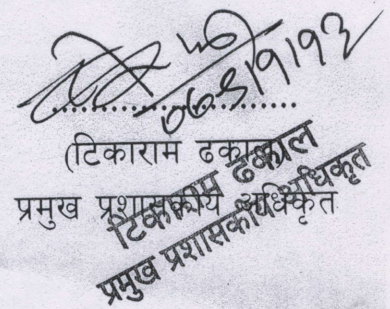 (टिकाराम ढकाल)
प्रमुख प्रशासकीय अधिकृत
टिकाराम ढकाल
प्रमुख प्रशासकीय अधिकृत